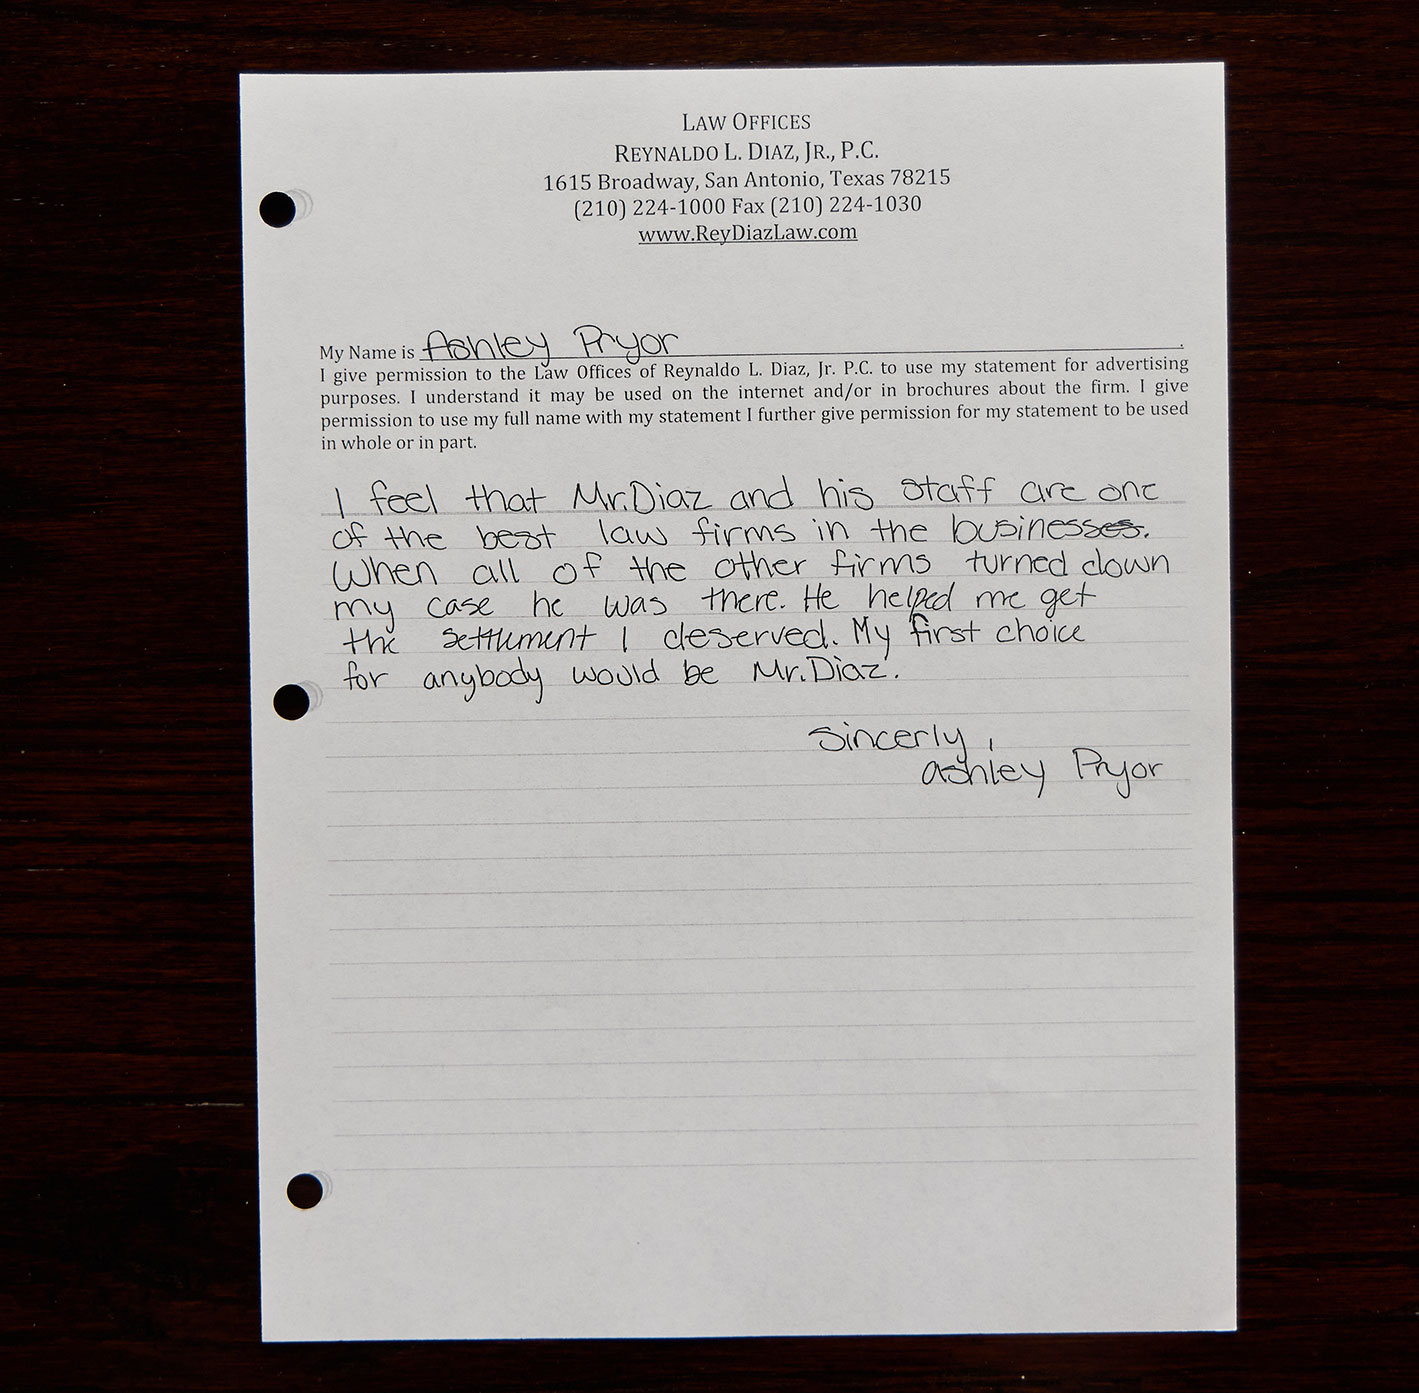 LAW OFFICES
REYNALDO L. DIAZ, JR., P.C.
1615 Broadway, San Antonio, Texas 78215
(210) 224-1000 Fax (210) 224-1030
www.ReyDiazLaw.com
My Name is Ashley Pryor.
I give permission to the Law Offices of Reynaldo L. Diaz, Jr. P.C. to use my statement for advertising
purposes. I understand it may be used on the internet and/or in brochures about the firm. I give
permission to use my full name with my statement I further give permission for my statement to be used
in whole or in part.
I feel that Mr. Diaz and his staff are one
of the best law firms in the business.
When all of the other firms turned down
my case he was there. He helped me get
the settlement I deserved. My first choice
for anybody would be Mr. Diaz.
Sincerly,
Ashley Pryor